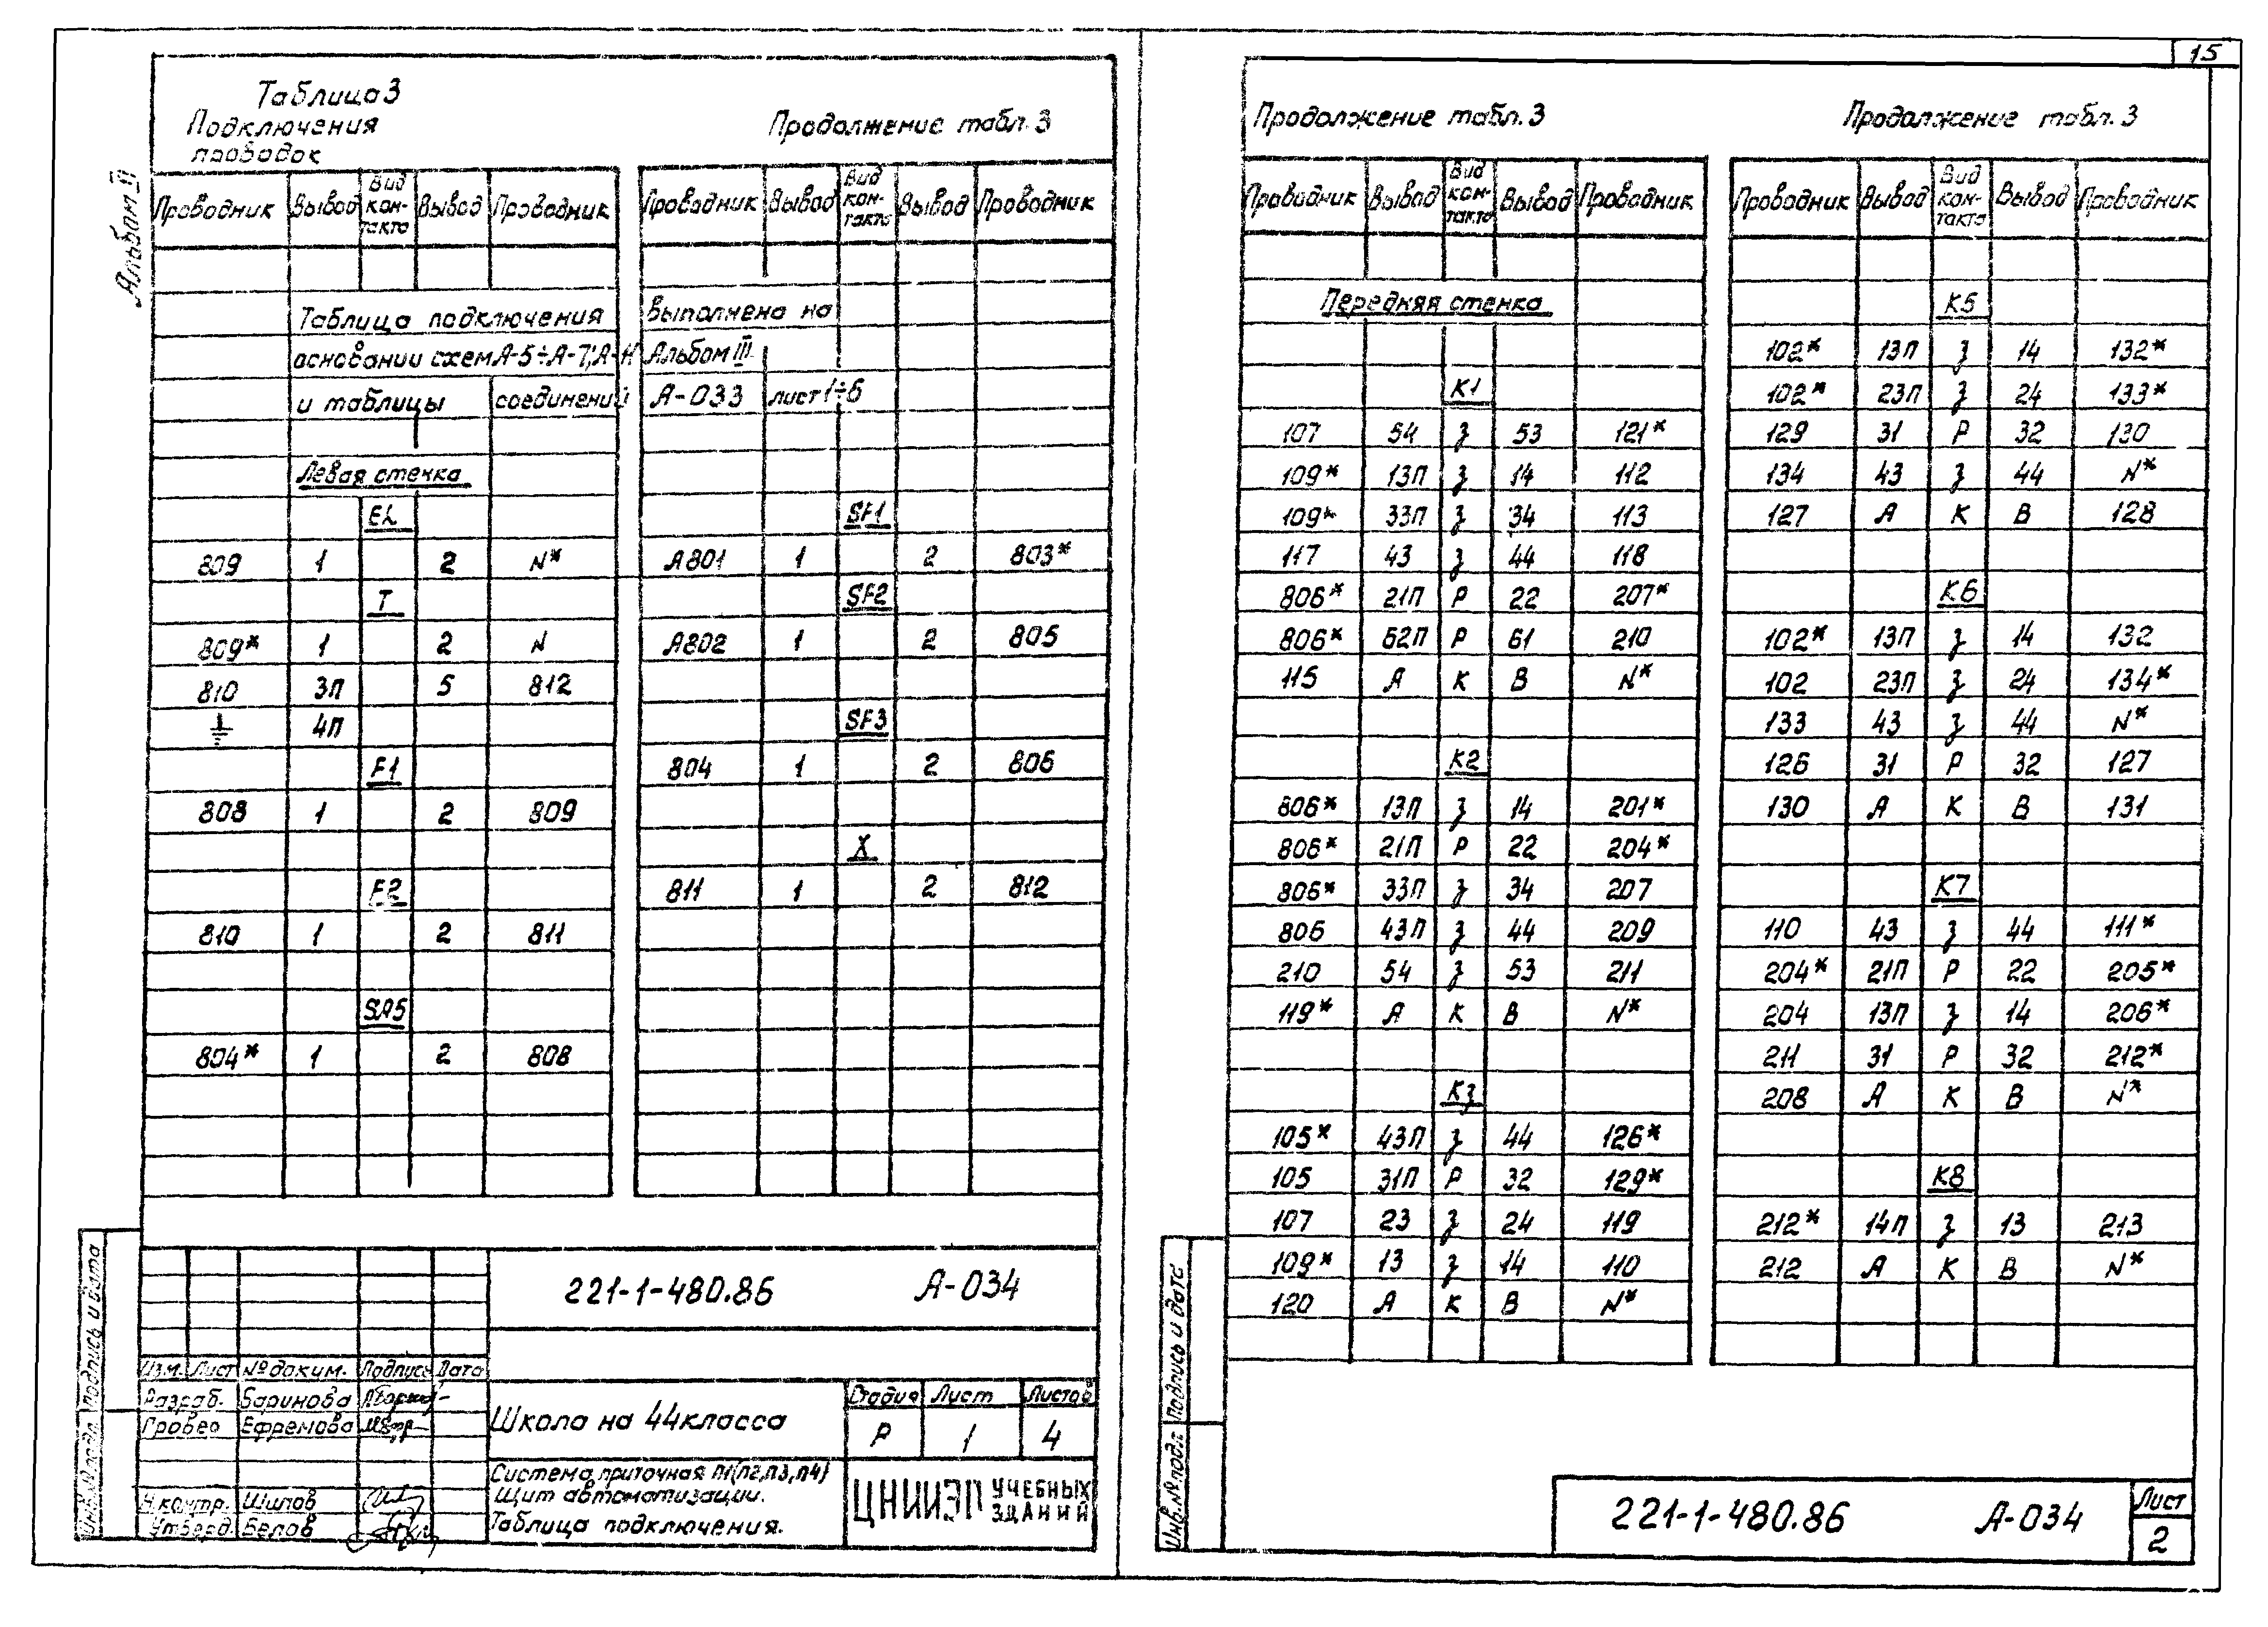 15
Альбом VI
Таблица 3
Подключения
проводок
Проводник Вывод Вид кон-такта Вывод Проводник
Таблица подключения выполнена на
основании схем А-5÷А-7; А-Н Альбом III
и таблицы соединений А-033 лист 1÷6
Левая стенка
EL
809 1 2 N*
T
809* 1 2 N
810 3П 5 812
⏚ 4П
F1
808 1 2 809
F2
810 1 2 811
SA5
804* 1 2 808
Продолжение табл. 3
Проводник Вывод Вид кон-такта Вывод Проводник
SF1
А801 1 2 803*
SF2
А802 1 2 805
SF3
804 1 2 806
X
811 1 2 812
221-1-480.86 А-034
Изм. Лист № докум. Подпись Дата
Разраб. Баринова
Провер Ефремова
Н.контр. Шилов
Утверд. Белов
Школа на 44 класса
Стадия Лист Листов
Р 1 4
Система приточная П1(П2,П3,П4)
Щит автоматизации.
Таблица подключения.
ЦНИИЭП УЧЕБНЫХ ЗДАНИЙ
Инв.№подл. Подпись и дата
Продолжение табл. 3
Проводник Вывод Вид кон-такта Вывод Проводник
Передняя стенка
К1
107 54 З 53 121*
109* 13П З 14 112
109* 33П З 34 113
117 43 З 44 118
806* 21П Р 22 207*
806* 62П Р 61 210
115 А К В N*
К2
806* 13П З 14 201*
806* 21П Р 22 204*
806* 33П З 34 207
806 43П З 44 209
210 54 З 53 211
119* А К В N*
К3
105* 43П З 44 126*
105 31П Р 32 129*
107 23 З 24 119
109* 13 З 14 110
120 А К В N*
Продолжение табл. 3
Проводник Вывод Вид кон-такта Вывод Проводник
К5
102* 13П З 14 132*
102* 23П З 24 133*
129 31 Р 32 130
134 43 З 44 N*
127 А К В 128
К6
102* 13П З 14 132
102 23П З 24 134*
133 43 З 44 N*
126 31 Р 32 127
130 А К В 131
К7
110 43 З 44 111*
204* 21П Р 22 205*
204 13П З 14 206*
211 31 Р 32 212*
208 А К В N*
К8
212* 14П З 13 213
212 А К В N*
Инв.№подл. Подпись и дата
221-1-480.86 А-034
Лист
2